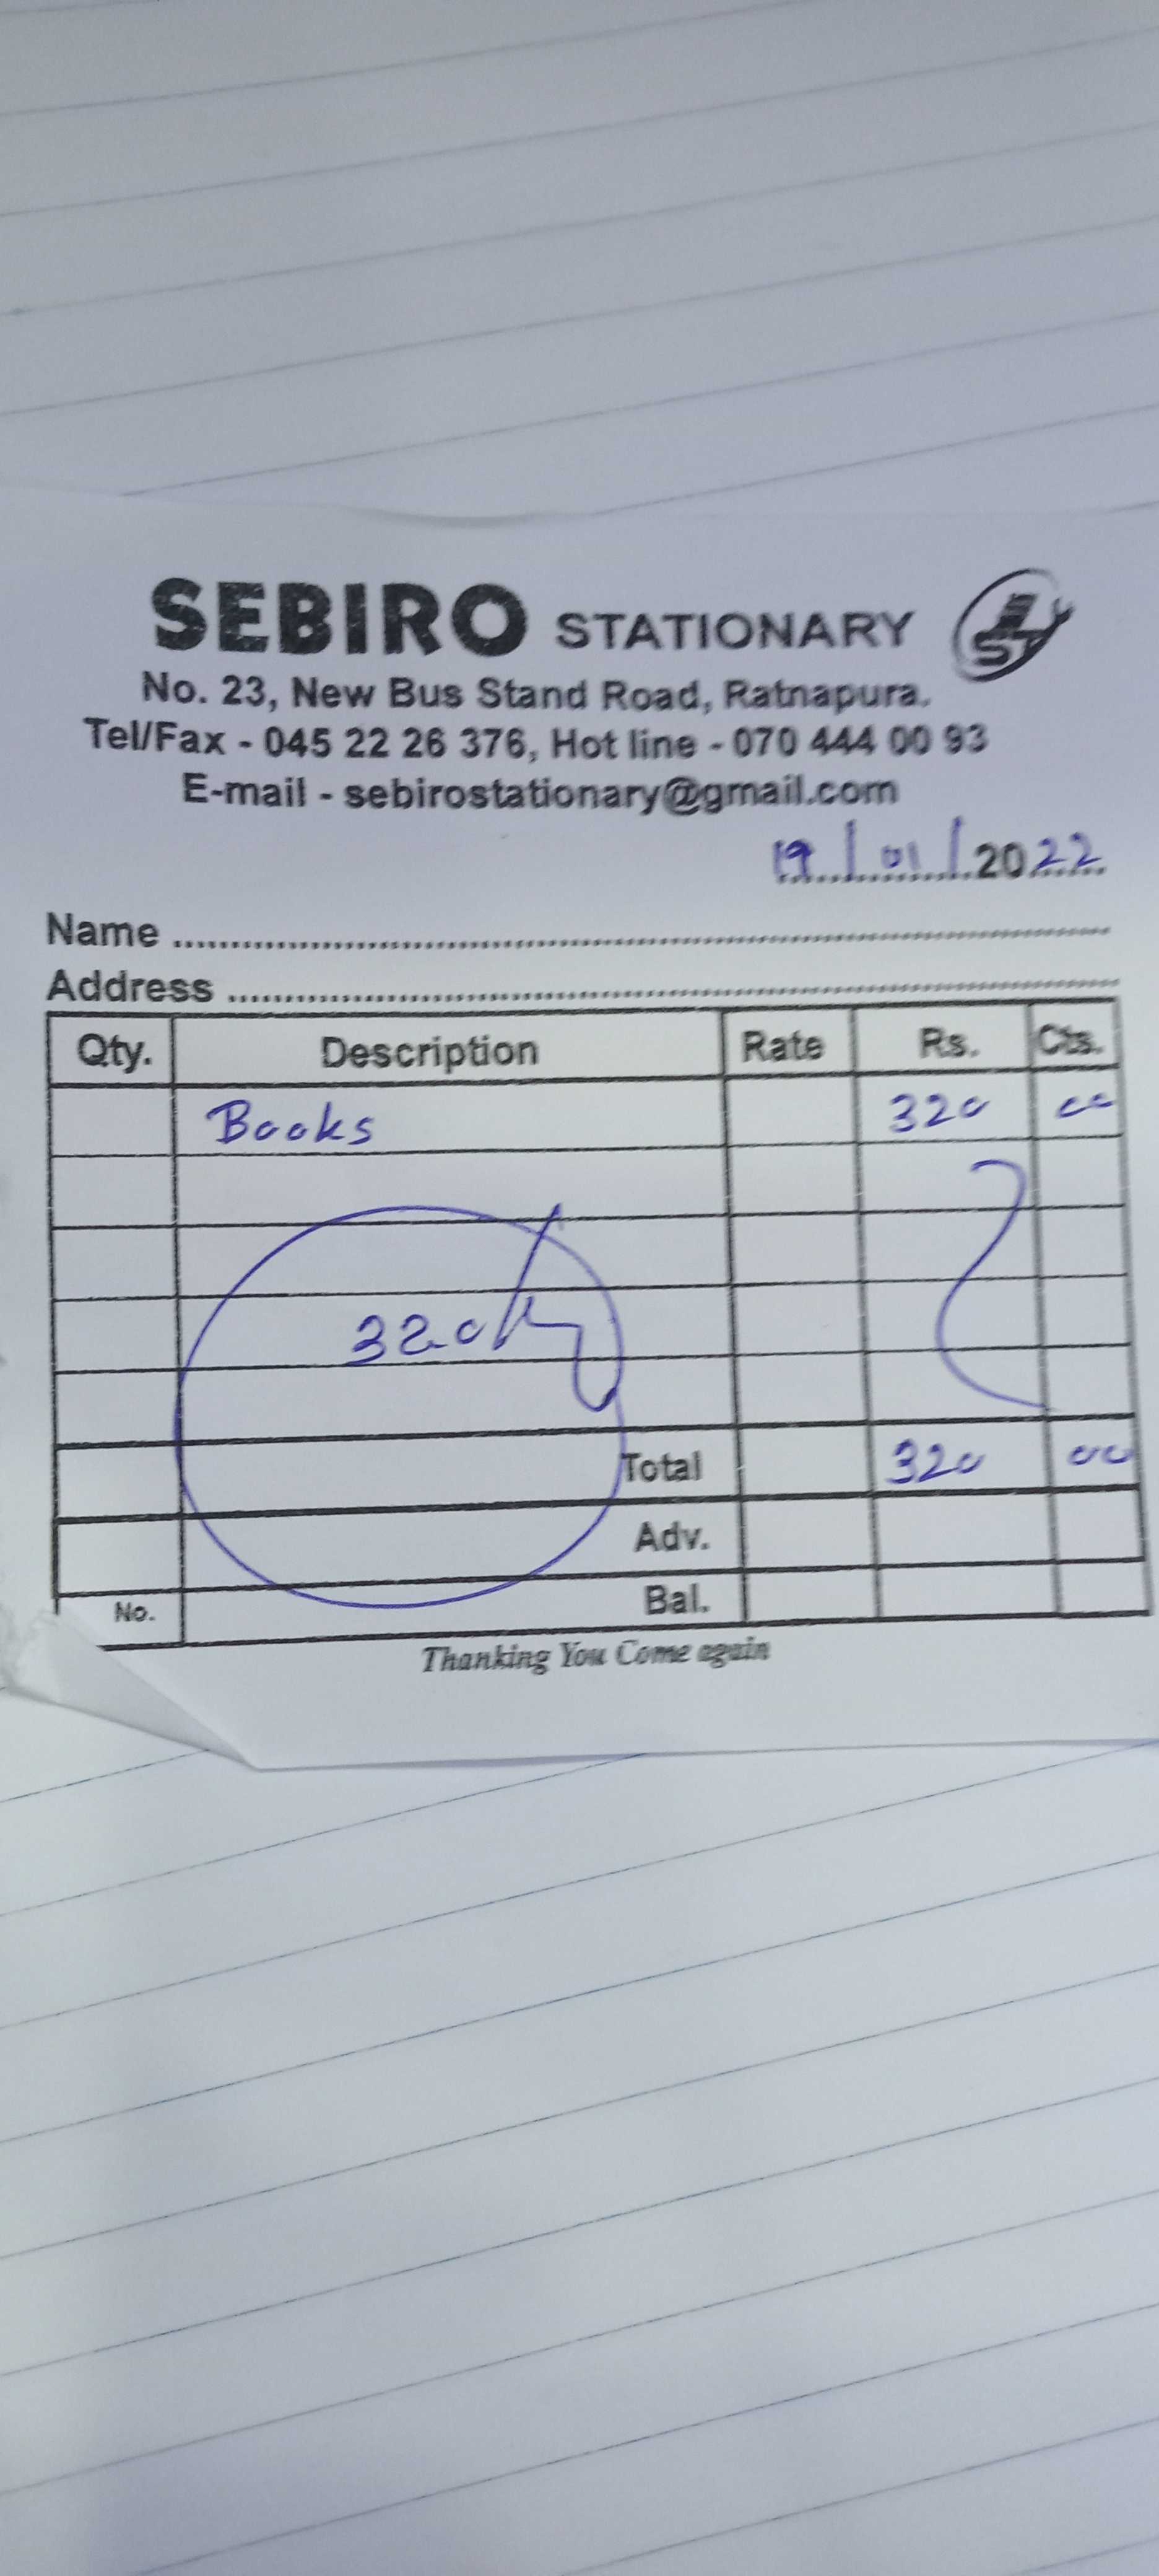 SEBIRO STATIONARY ST
No. 23, New Bus Stand Road, Ratnapura.
Tel/Fax - 045 22 26 376, Hot line - 070 444 00 93
E-mail - sebirostationary@gmail.com
19/01/2022
Name ........................
Address ........................
Qty. Description Rate Rs. Cts.
Books 320 00
320/
Total 320 00
Adv.
No. Bal.
Thanking You Come again